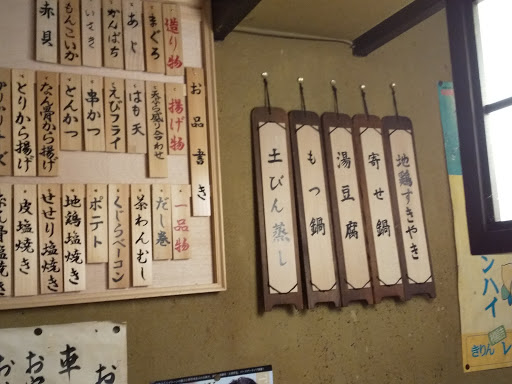 お品書き
造り物
まぐろ
あじ
かんぱち
いくら
もんごいか
赤貝
揚げ物
天ぷら盛り合わせ
はも天
えびフライ
串かつ
とんかつ
なん骨から揚げ
とりから揚げ
一品物
だし巻
茶わんむし
くじらベーコン
ポテト
地鶏塩焼き
せせり塩焼き
皮塩焼き
地鶏すきやき
寄せ鍋
湯豆腐
もつ鍋
土びん蒸し
ンハイ
きりん
レ
車
お